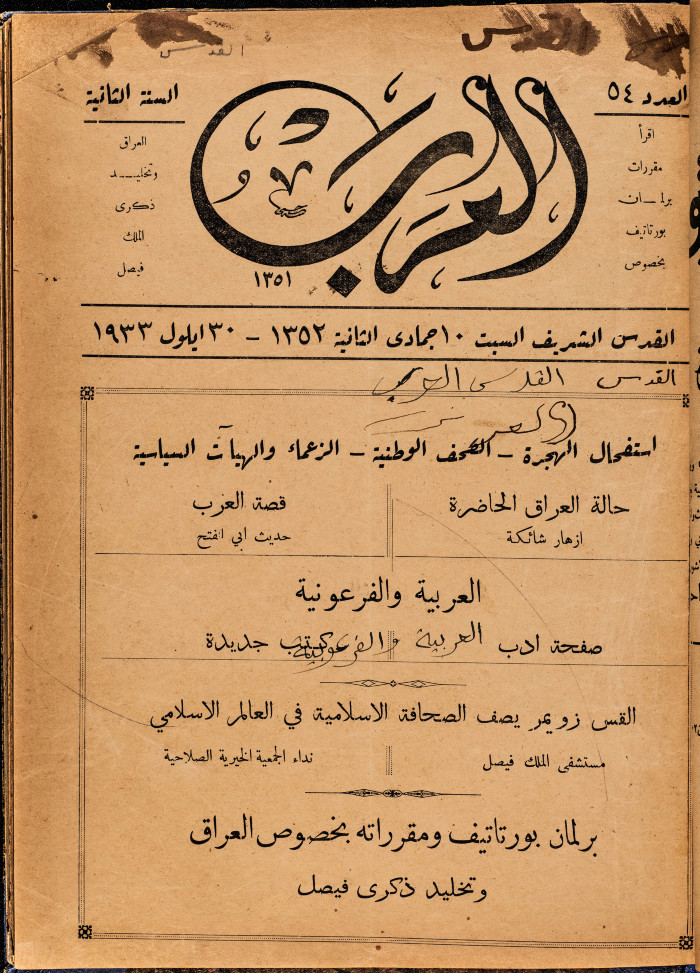 القدس القدس
العدد ٥٤
السنة الثانية
العرب
١٣٥١
اقرأ
مقررات
برلمــان
بورتاتيف
بخصوص
العراق
وتخليــد
ذكرى
الملك
فيصل
القدس الشريف السبت ١٠ جمادى الثانية ١٣٥٢ – ٣٠ ايلول ١٩٣٣
القدس القدس العرب
استفحال الهجرة – الصحف الوطنية – الزعماء والهيآت السياسية
حالة العراق الحاضرة
ازهار شائكة
قصة العرب
حديث ابي الفتح
العربية والفرعونية
صفحة ادب
العربية والفرعونية
كتب جديدة
القس زويمر يصف الصحافة الاسلامية في العالم الاسلامي
مستشفى الملك فيصل
نداء الجمعية الخيرية الصلاحية
برلمان بورتاتيف ومقرراته بخصوص العراق
وتخليد ذكرى فيصل